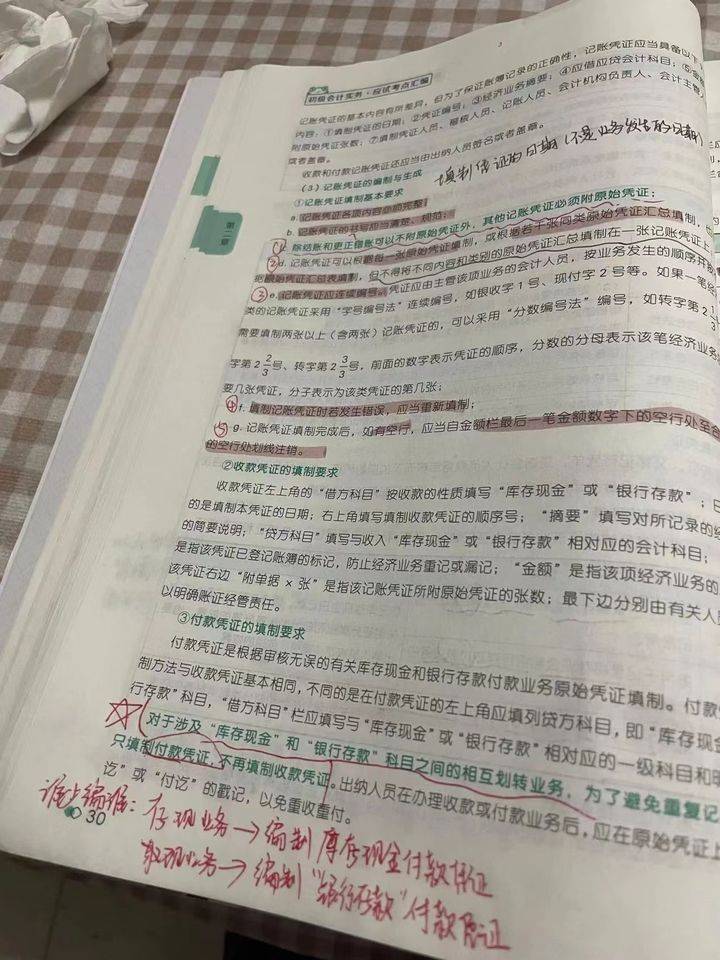 初级会计实务·应试考点汇编
记账凭证的基本内容有所差异，但为了保证账簿记录的正确性，记账凭证应当具备以下
内容：①填制凭证的日期；②凭证编号；③经济业务摘要；④应借应贷会计科目；⑤金额
附原始凭证张数；⑦填制凭证人员、稽核人员、记账人员、会计机构负责人、会计主管人
或者盖章。
收款和付款记账凭证还应当由出纳人员签名或者盖章。
填制凭证的日期(不是业务发生的日期)
（3）记账凭证的编制与生成
①记账凭证填制基本要求
第二章
a. 记账凭证各项内容必须完整；
b. 记账凭证的书写应当清楚、规范；
① 除结账和更正错账可以不附原始凭证外，其他记账凭证必须附原始凭证；
② d. 记账凭证可以根据每一张原始凭证填制，或根据若干张同类原始凭证汇总填制，
据原始凭证汇总表填制，但不得将不同内容和类别的原始凭证汇总填制在一张记账凭证上
③ e. 记账凭证应连续编号。凭证应由主管该项业务的会计人员，按业务发生的顺序并按
类的记账凭证采用“字号编号法”连续编号，如银收字1号、现付字2号等。如果一笔经
需要填制两张以上（含两张）记账凭证的，可以采用“分数编号法”编号，如转字第2 1/3
字第2 2/3号、转字第2 3/3号，前面的数字表示凭证的顺序，分数的分母表示该笔经济业务
要几张凭证，分子表示为该类凭证的第几张；
④ f. 填制记账凭证时若发生错误，应当重新填制；
⑤ g. 记账凭证填制完成后，如有空行，应当自金额栏最后一笔金额数字下的空行处至合
的空行处划线注销。
②收款凭证的填制要求
收款凭证左上角的“借方科目”按收款的性质填写“库存现金”或“银行存款”；日
的是填制本凭证的日期；右上角填写填制收款凭证的顺序号；“摘要”填写对所记录的经
的简要说明；“贷方科目”填写与收入“库存现金”或“银行存款”相对应的会计科目；
是指该凭证已登记账簿的标记，防止经济业务重记或漏记；“金额”是指该项经济业务的
该凭证右边“附单据×张”是指该记账凭证所附原始凭证的张数；最下边分别由有关人
以明确账证经管责任。
③付款凭证的填制要求
付款凭证是根据审核无误的有关库存现金和银行存款付款业务原始凭证填制。付款
制方法与收款凭证基本相同，不同的是在付款凭证的左上角应填列贷方科目，即“库存现金
行存款”科目，“借方科目”栏应填写与“库存现金”或“银行存款”相对应的一级科目和明
对于涉及“库存现金”和“银行存款”科目之间的相互划转业务，为了避免重复记
只填制付款凭证，不再填制收款凭证。出纳人员在办理收款或付款业务后，应在原始凭证上
讫”或“付讫”的戳记，以免重收重付。
谁少编谁：存现业务→编制库存现金付款凭证
30
取现业务→编制“银行存款”付款凭证